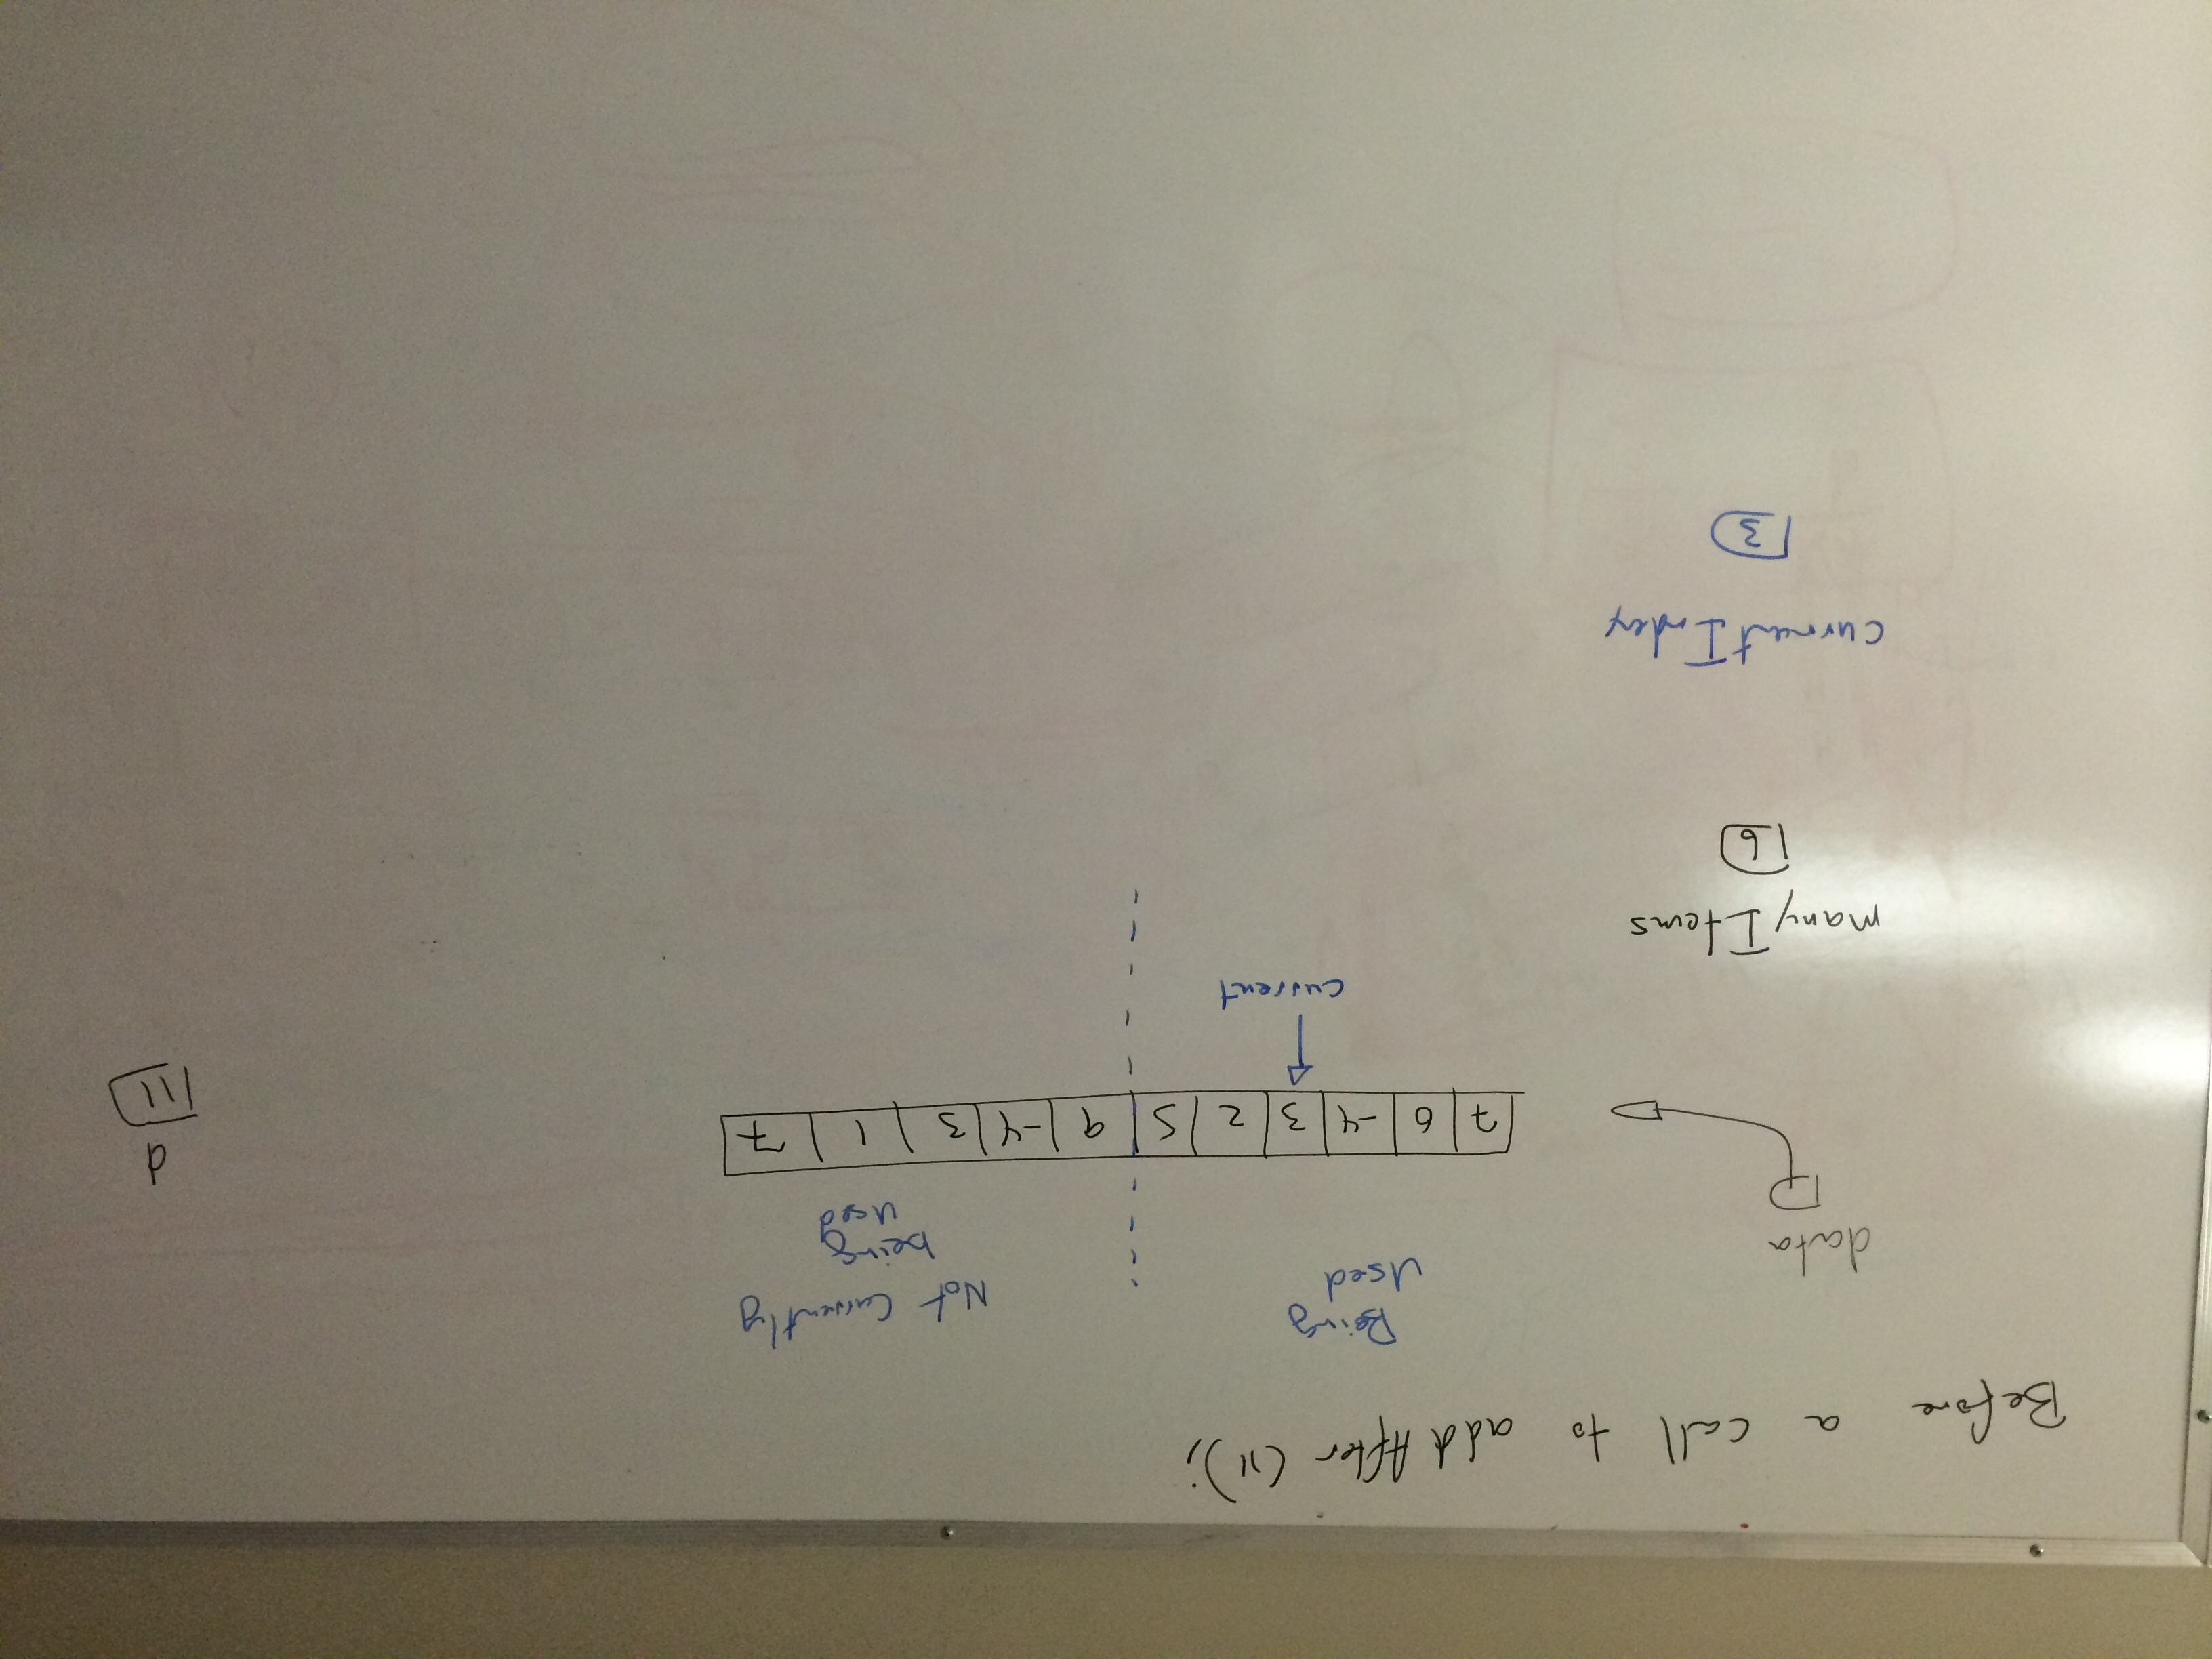 Before a call to addAfter (11);
Being
Used
Not Currently
being
Used
data
7 6 -4 3 2 5 9 -4 3 1 7
d
11
current
manyItems
6
currentIndex
3